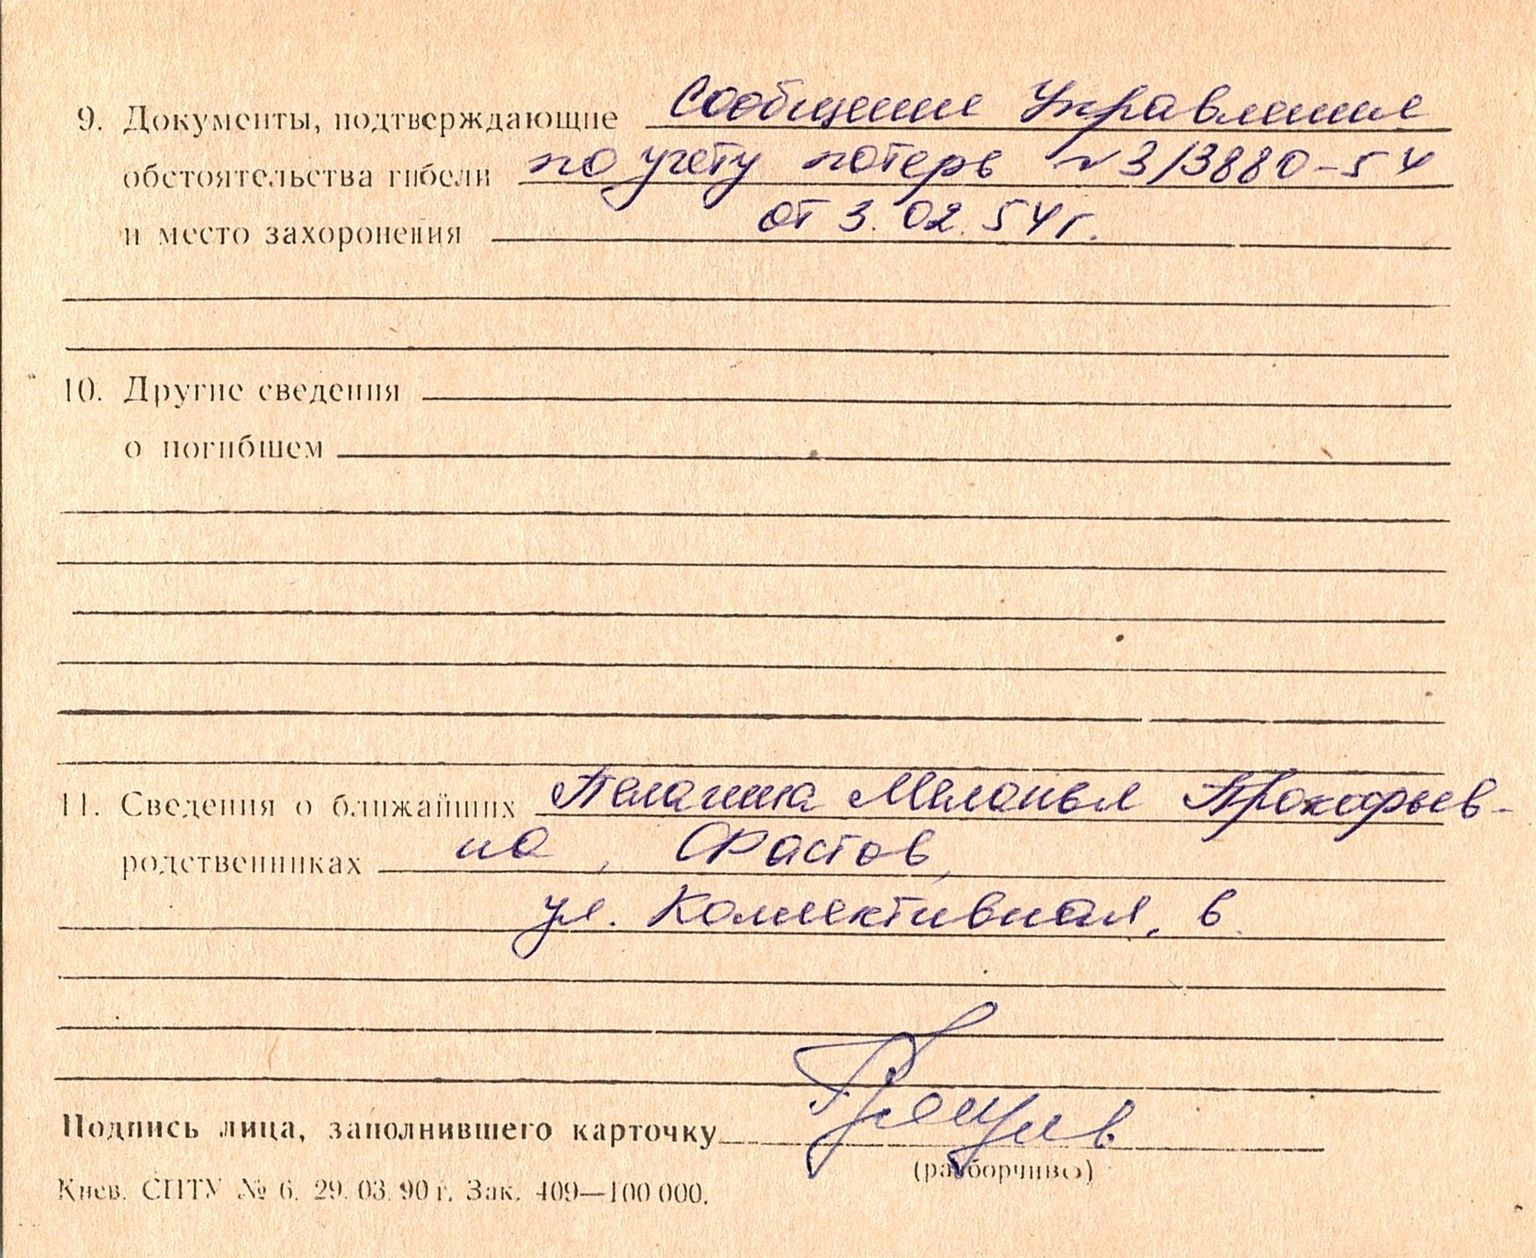 9. Документы, подтверждающие Сообщение Управления
обстоятельства гибели по учету потерь № 3/3880-54
и место захоронения от 3.02.54 г.
10. Другие сведения
о погибшем
11. Сведения о ближайших Мелания Прокофьев-
родственниках на, Фастов,
ул. Коллективная, 6
Подпись лица, заполнившего карточку
(разборчиво)
Киев. СПТУ № 6. 29. 03. 90 г. Зак. 409—100 000.